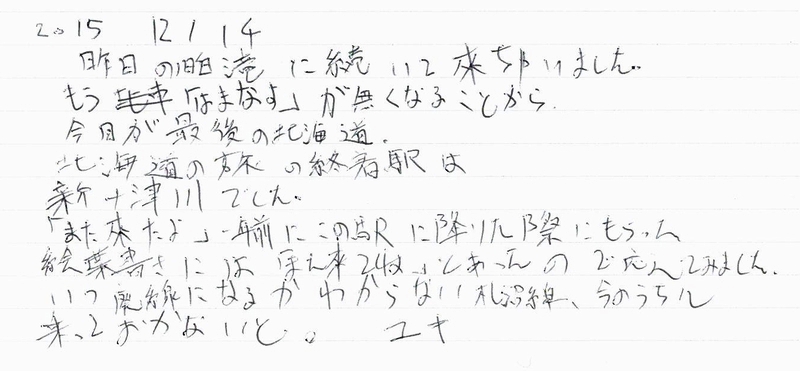 2015 12/14
昨日の旧白滝に続いて来ちゃいました。
もう「はまなす」が無くなることから、
今日が最後の北海道。
北海道の旅の終着駅は
新十津川でした。
「また来たよ」一前にこの駅に降りた際にもらった
絵葉書きには「また来てね」とあったので応えてみました。
いつ廃線になるかわからない札沼線、今のうちに
来っとおかないと。 ユキ